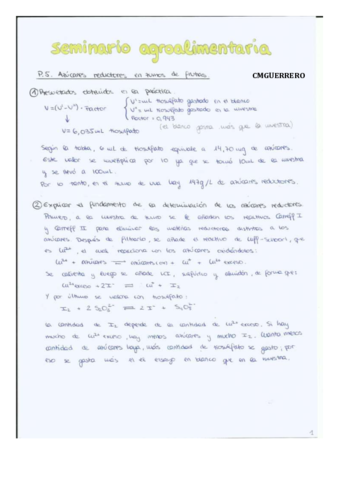 Seminario agroalimentaria
CMGUERRERO
P.5. Azúcares reductores en zumos de frutas
① Resultados obtenidos en la práctica
V = (V' - V'') · Factor
V' = mL tiosulfato gastado en el blanco
V'' = mL tiosulfato gastado en la muestra
Factor = 0,993
(el blanco gasta más que la muestra)
V = 6,035 mL tiosulfato
Según la tabla, 6 mL de tiosulfato equivale a 14,70 mg de azúcares.
Este valor se multiplica por 10 ya que se tomó 10mL de la muestra
y se llevó a 100mL.
Por lo tanto, en el zumo de uva hay 147g/L de azúcares reductores.
② Explicar el fundamento de la determinación de los azúcares reductores
Primero, a la muestra de zumo se le añaden los reactivos Carrez I
y Carrez II para eliminar las materias reductoras distintas a los
azúcares. Después de filtrarlo, se añade el reactivo de Luff-Schoorl, que
es Cu²⁺, el cual reacciona con los azúcares oxidándolos:
Cu²⁺ + azúcares → azúcares(ox) + Cu⁺ + Cu²⁺exceso.
Se calienta y luego se añade KI, sulfúrico y almidón, de forma que:
Cu²⁺exceso + 2I⁻ → Cu⁺ + I₂
Y por último se valora con tiosulfato:
I₂ + 2 S₂O₃²⁻ → 2 I⁻ + S₄O₆²⁻
La cantidad de I₂ depende de la cantidad de Cu²⁺ exceso. Si hay
mucho de Cu²⁺ exceso, hay menos azúcares y mucho I₂. Cuanto menos
cantidad de azúcares haya, más cantidad de tiosulfato se gasta, por
eso se gasta más en el ensayo en blanco que en la muestra.
1